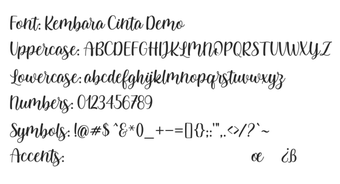 Font: Kembara Cinta Demo
Uppercase: ABCDEFGHIJKLMNOPQRSTUVWXYZ
Lowercase: abcdefghijklmnopqrstuvwxyz
Numbers: 0123456789
Symbols: !@#$ ^&*()_+-=[]{};:'",.<>/?`~
Accents: œ ¿ß